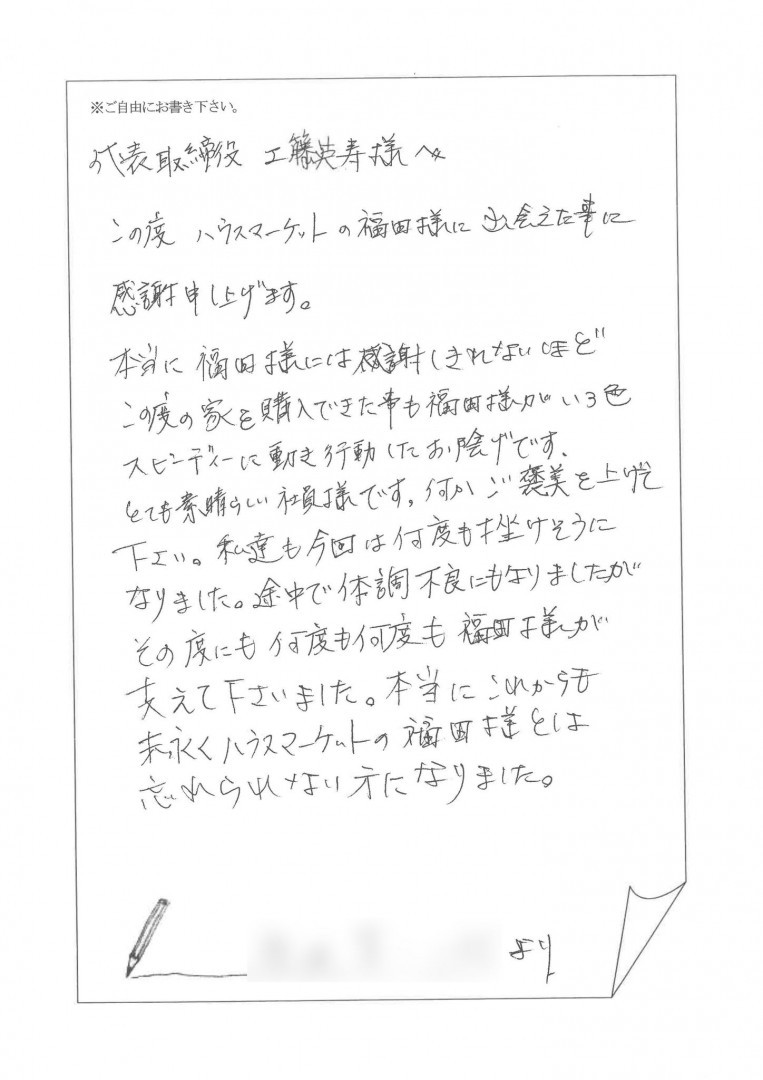 ※ご自由にお書き下さい。
代表取締役 工藤英寿様へ
この度 ハウスマーケットの福田様に出会えた事に
感謝申し上げます。
本当に福田様には感謝しきれないほど
この度の家を購入できた事も福田様がいろ色
スピーディーに動き行動したお陰げです、
とても素晴らしい社員様です。何かご褒美を上げて
下さい。私達も今回は何度も挫けそうに
なりました。途中で体調不良にもなりましたが
その度にも何度も何度も福田様が
支えて下さいました。本当にこれからも
末永くハウスマーケットの福田様とは
忘れられない方になりました。
より